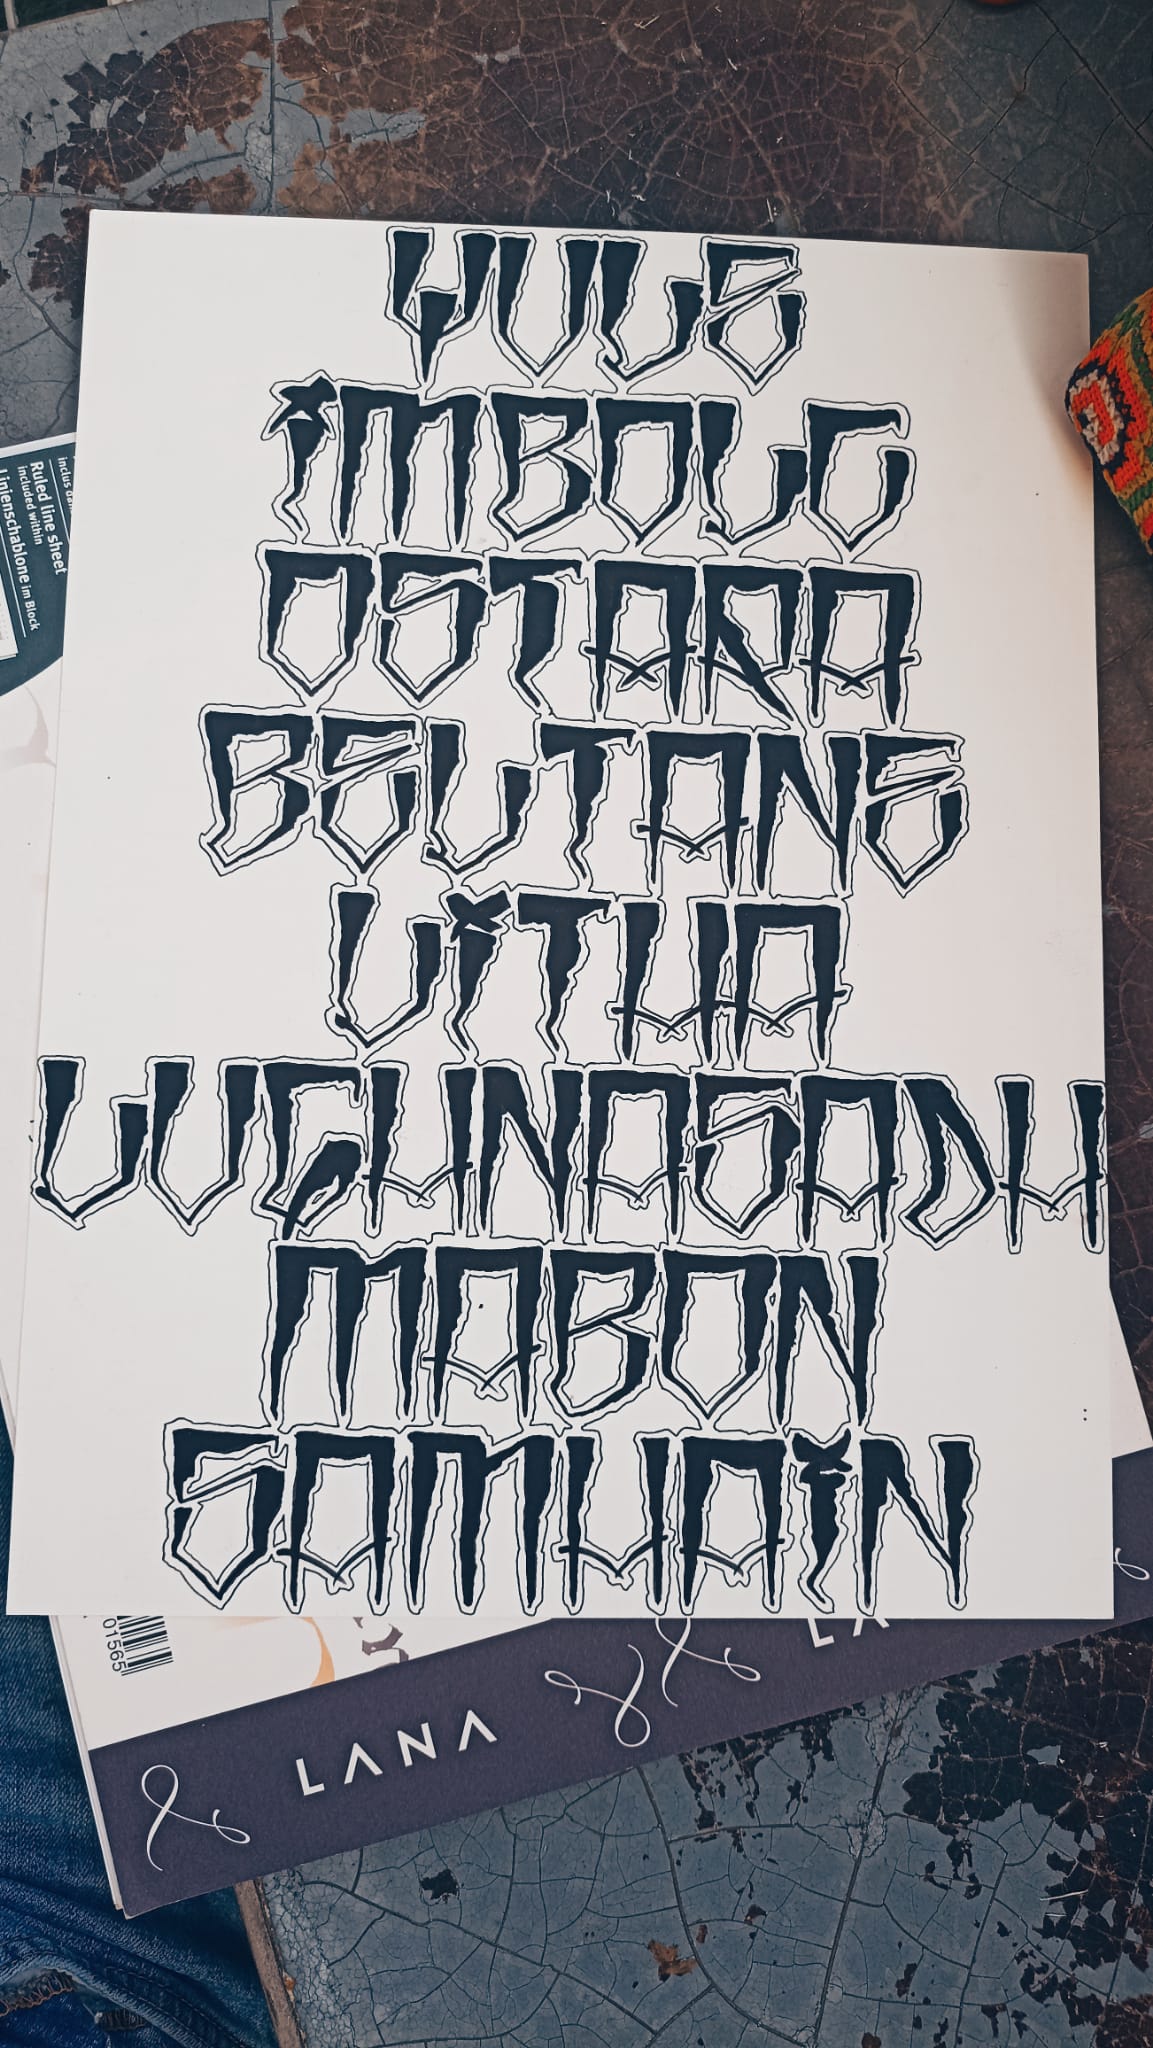 YULE
iMBOLC
OSTARA
BELTANE
LiTHA
LUGHNASADH
MABON
SAMHAiN
inclus dans
Ruled line sheet
included within
Linienschablone im Block
01565
LANA
LA